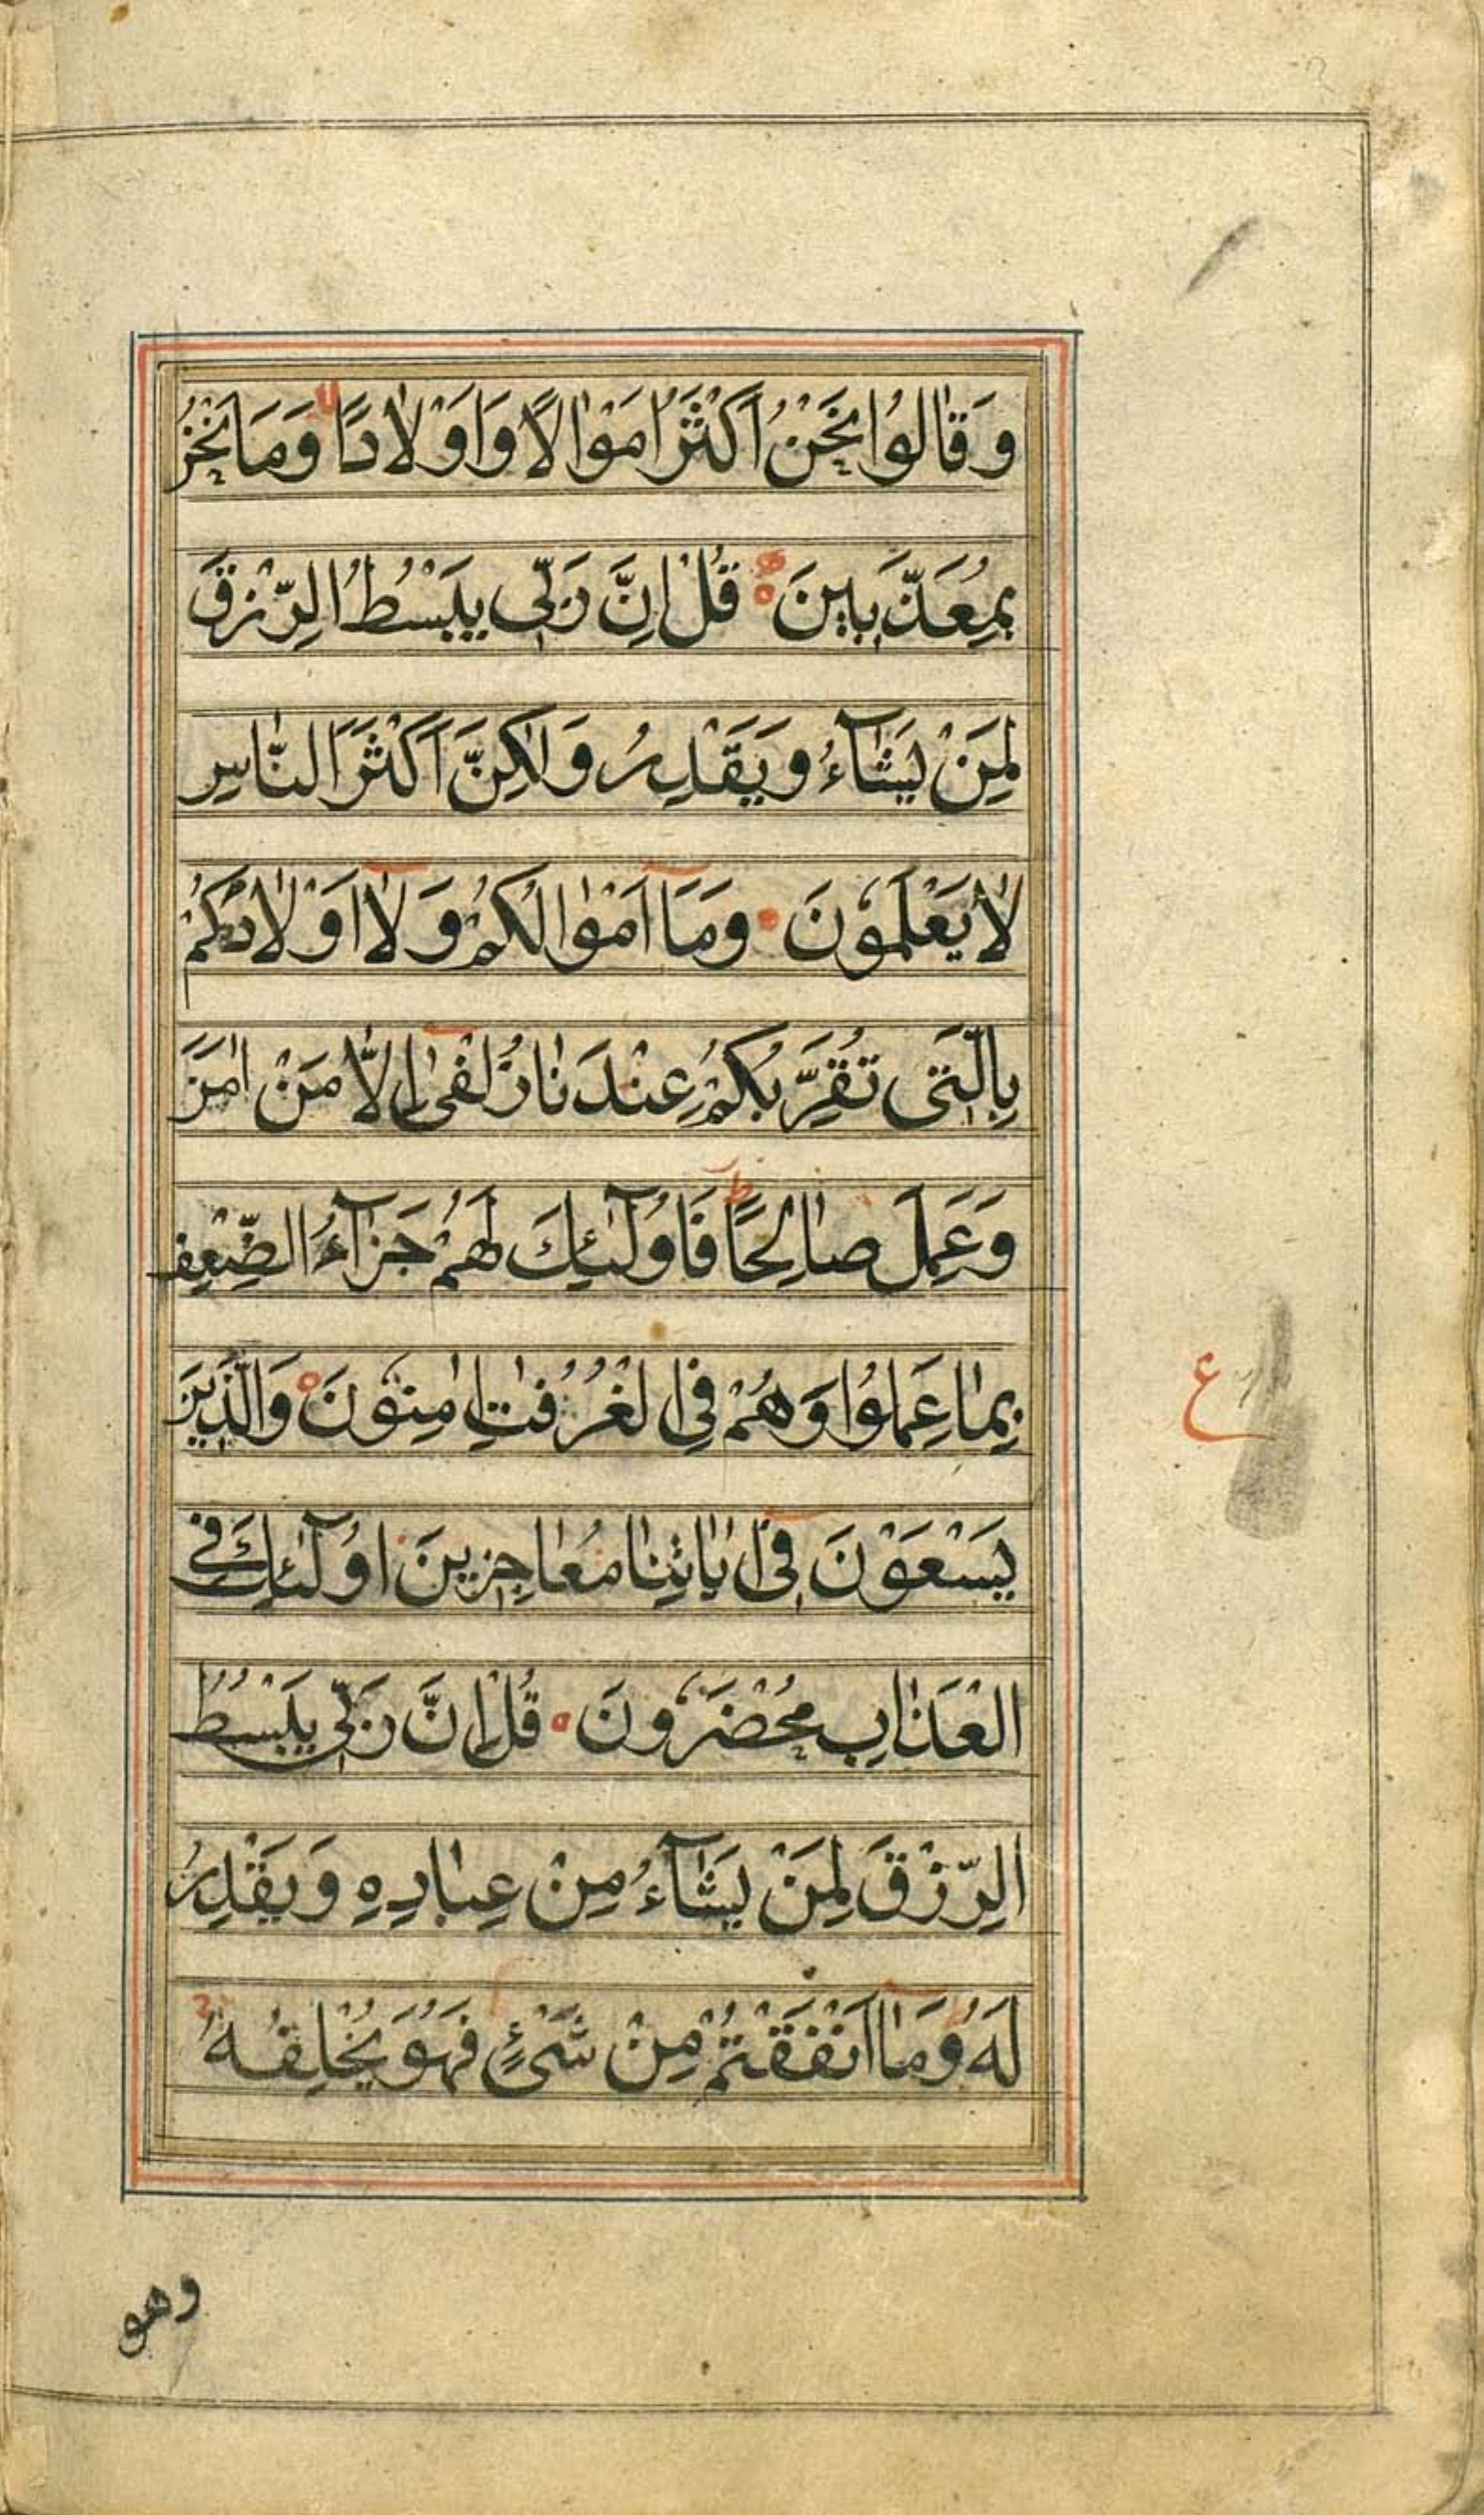 وَقٰالُوا نَحْنُ اَكْثَرُ اَمْوٰالًا وَاَوْلٰادًا وَمٰا نَحْنُ
بِمُعَذَّبٖينَ قُلْ اِنَّ رَبّٖى يَبْسُطُ الرِّزْقَ
لِمَنْ يَشٰآءُ وَيَقْدِرُ وَلٰكِنَّ اَكْثَرَ النّٰاسِ
لٰا يَعْلَمُونَ وَمَٓا اَمْوٰالُكُمْ وَلٰٓا اَوْلٰادُكُمْ
بِالَّتٖى تُقَرِّبُكُمْ عِنْدَنٰا زُلْفٰىٓ اِلّٰا مَنْ اٰمَنَ
وَعَمِلَ صٰالِحًا فَاُولٰٓئِكَ لَهُمْ جَزٰآءُ الضِّعْفِ
بِمٰا عَمِلُوا وَهُمْ فِى الْغُرُفٰاتِ اٰمِنُونَ وَالَّذٖينَ
يَسْعَوْنَ فٖٓى اٰيٰاتِنٰا مُعٰاجِزٖينَ اُولٰٓئِكَ فِى
الْعَذٰابِ مُحْضَرُونَ قُلْ اِنَّ رَبّٖى يَبْسُطُ
الرِّزْقَ لِمَنْ يَشٰآءُ مِنْ عِبٰادِهٖ وَيَقْدِرُ
لَهُ وَمٰٓا اَنْفَقْتُمْ مِنْ شَىْءٍ فَهُوَ يُخْلِفُهُ
ع
وهو